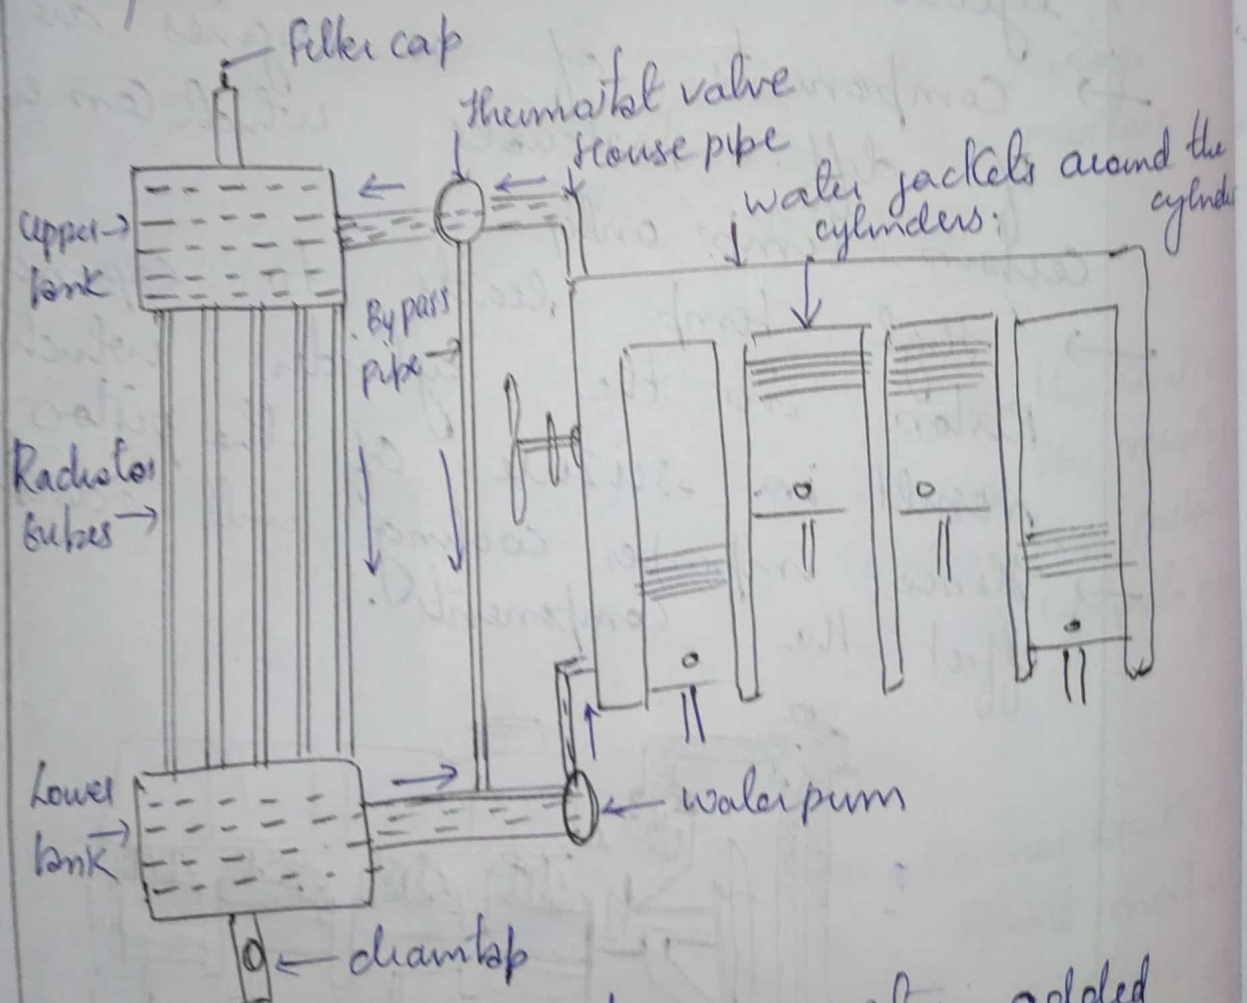 Filler cap
thermaitat valve
House pipe
water jackets around the
cylinders:
cylinde
upper
tank
Bypass
pipe
Radiator
tubes
Lower
tank
water pum
draintap
added